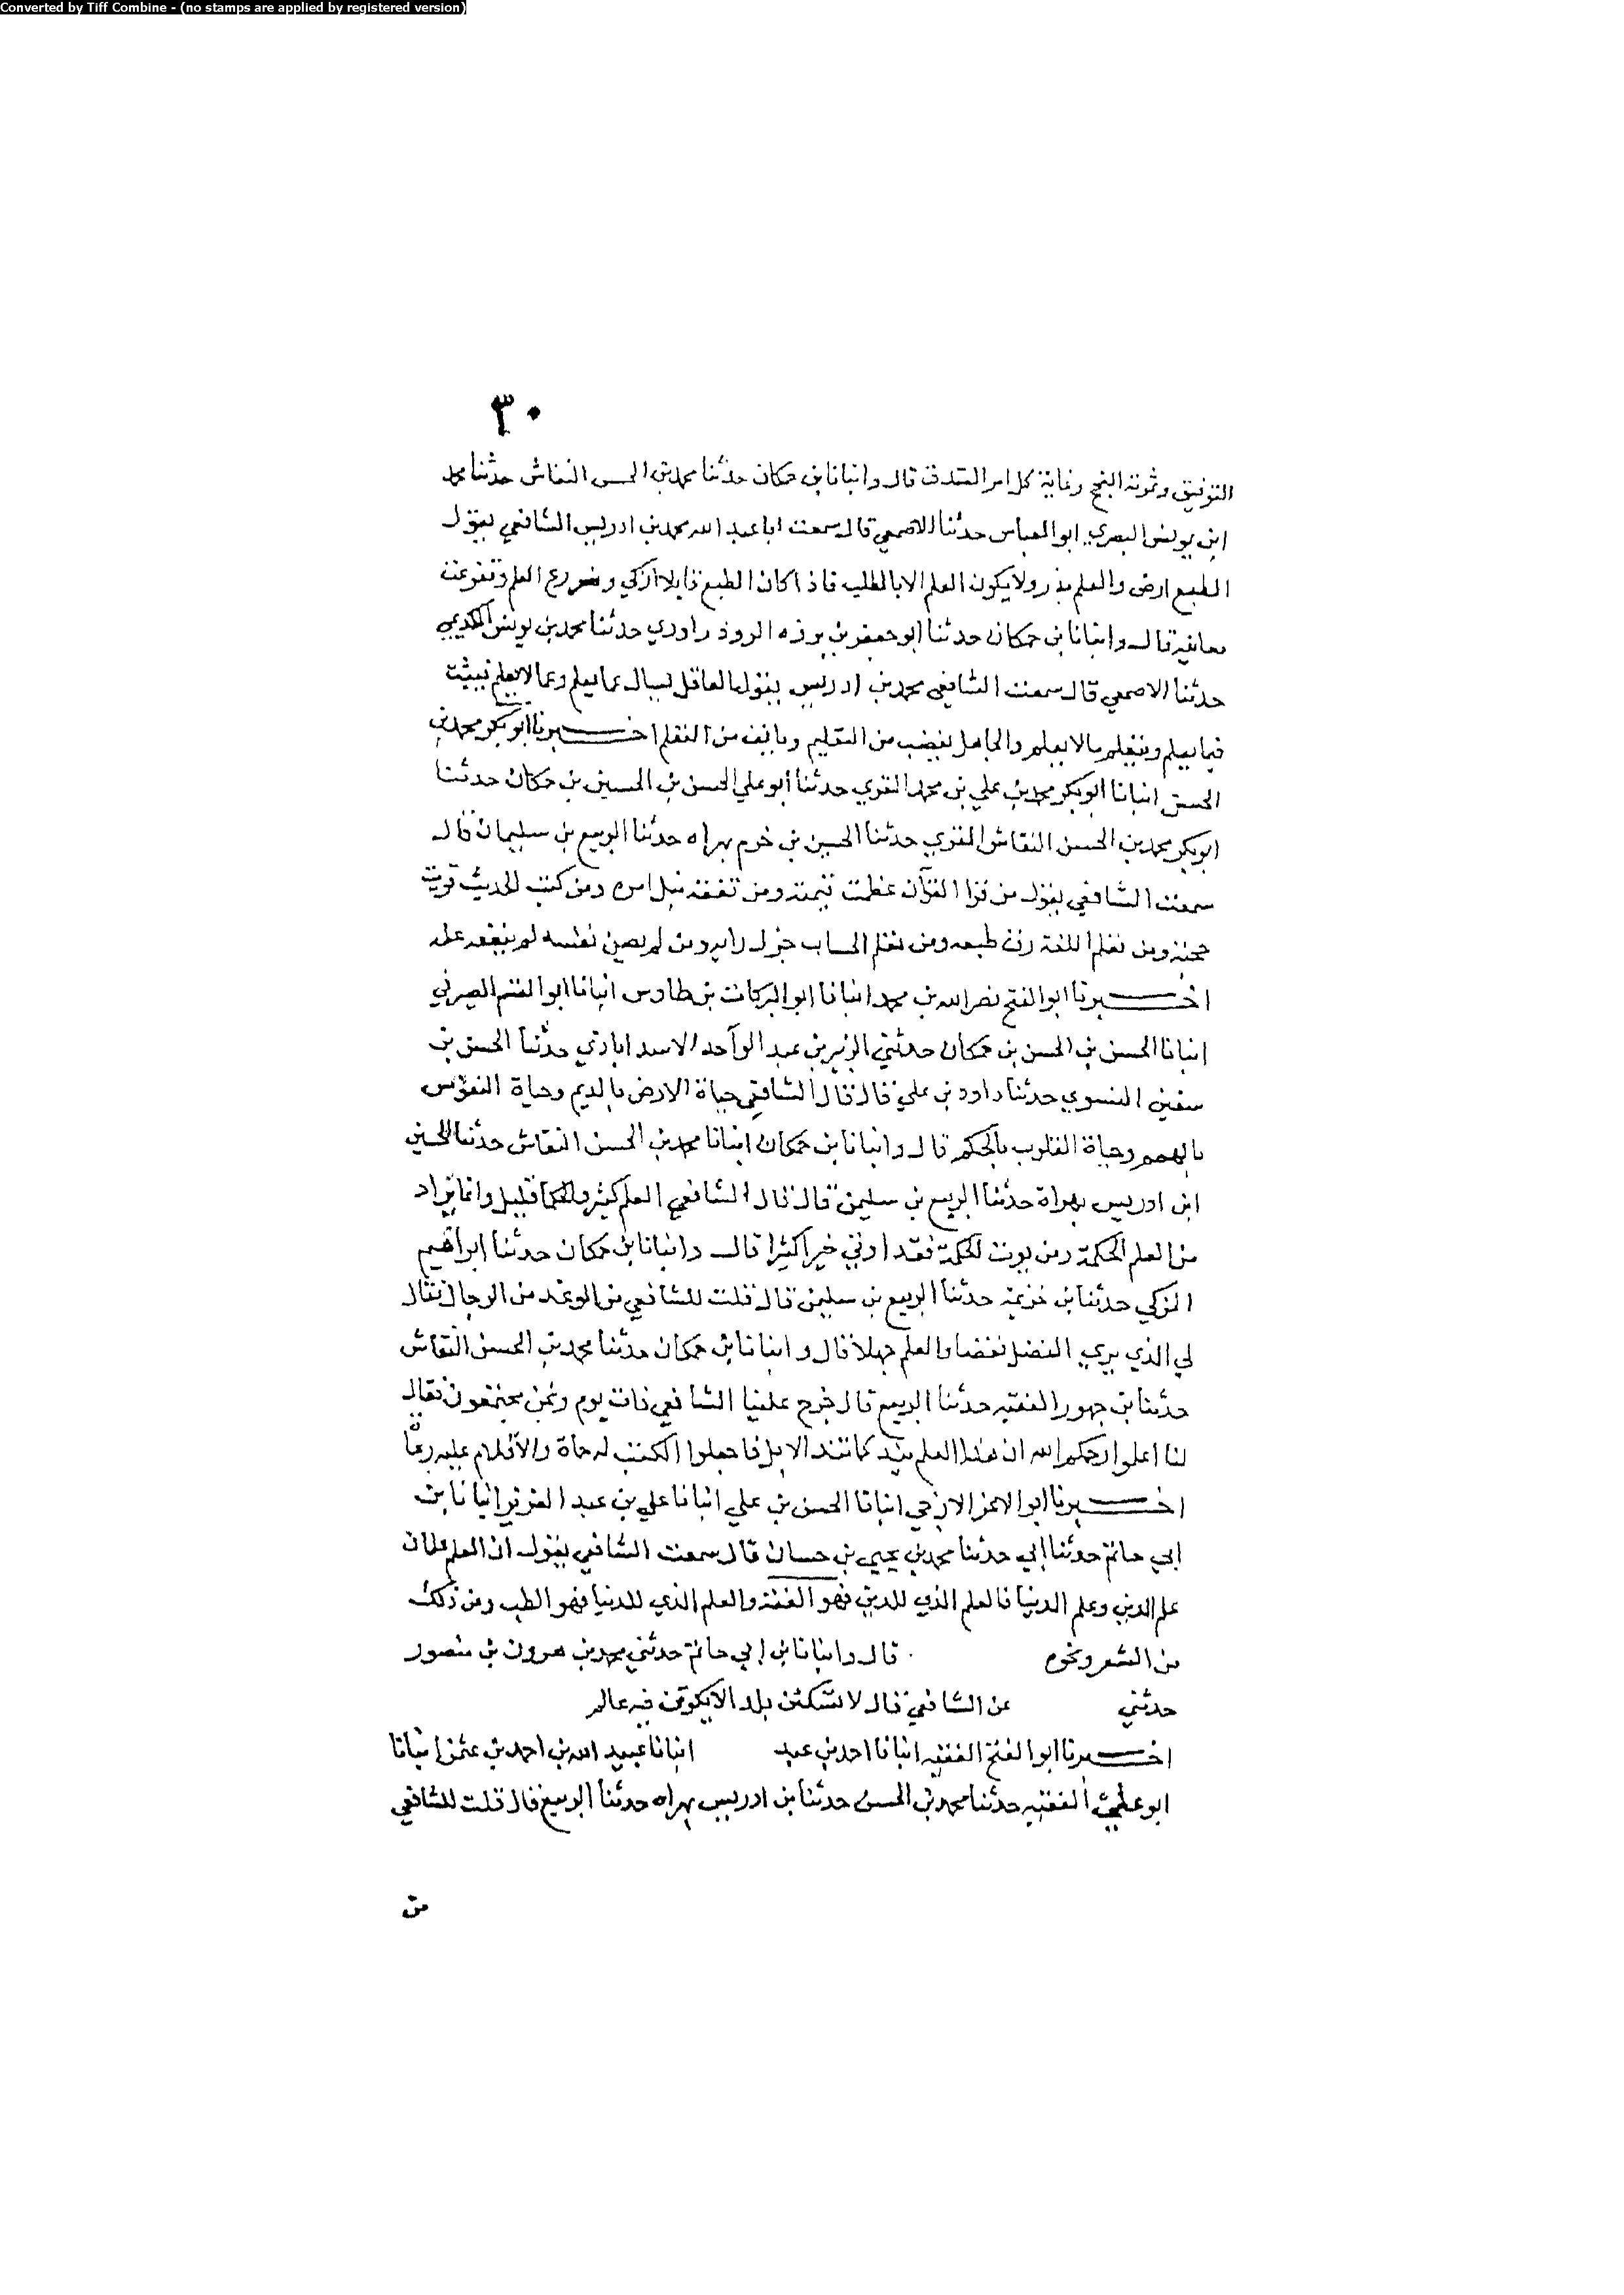 Converted by Tiff Combine - (no stamps are applied by registered version)
٣٠
التوفيق وثمرته النجح وغاية كل امر الصدق قال وانبانا بن حمكان حدثنا محمد بن الحسن النقاش حدثنا محمد
ابن يونس البصري ابو العباس حدثنا الاصمعي قال سمعت ابا عبد الله محمد بن ادريس الشافعي يقول
الطبع ارض والعلم بذر ولا يكون العلم الا بالطلب فاذا كان الطبع قابلا زكي ريع العلم وتفرعت
معانيه قال وانبانا بن حمكان حدثنا ابو جعفر بن برزه الروذراوري حدثنا محمد بن يونس الكديمي
حدثنا الاصمعي قال سمعت الشافعي محمد بن ادريس يقول العاقل يسال عما يعلم وعما لا يعلم فيثبت
فيما يعلم ويتعلم ما لا يعلم والجاهل يغضب من التعليم ويانف من التعلم اخبرنا ابو بكر محمد بن
الحسن انبانا ابو بكر محمد بن علي بن محمد المقري حدثنا ابو علي الحسن بن الحسين بن حمكان حدثنا
ابو بكر محمد بن الحسن النقاش المقري حدثنا الحسين بن خرم بهراه حدثنا الربيع بن سليمان قال
سمعت الشافعي يقول من قرا القرآن عظمت قيمته ومن تفقه نبل امره ومن كتب الحديث قويت
حجته ومن تعلم اللغة رق طبعه ومن تعلم الحساب جزل رايه ومن لم يصن نفسه لم ينفعه علمه
اخبرنا ابو الفتح نصر الله بن محمد انبانا ابو البركات بن طاوس انبانا ابو القسم الصيرفي
انبانا الحسن بن الحسن بن حمكان حدثني الزبير بن عبد الواحد الاسدابادي حدثنا الحسن بن
سفين النسوي حدثنا داود بن علي قال قال الشافعي حياة الارض بالديم وحياة النفوس
بالهمم وحياة القلوب بالحكم قال وانبانا بن حمكان انبانا محمد بن الحسن النقاش حدثنا الحسين
ابن ادريس بهراة حدثنا الربيع بن سليمن قال قال الشافعي العلم كثير والحكما قليل وانما يراد
من العلم الحكمة ومن يوت الحكمة فقد اوتي خيرا كثيرا قال وانبانا بن حمكان حدثنا ابراهيم
المزكي حدثنا بن خزيمة حدثنا الربيع بن سليمن قال قلت للشافعي من الوغد من الرجال فقال
لي الذي يري الفضل نقصا والعلم جهلا قال وانبانا بن حمكان حدثنا محمد بن الحسن النقاش
حدثنا بن جهور الفقيه حدثنا الربيع قال خرج علينا الشافعي ذات يوم ونحن مجتمعون فقال
لنا اعلموا رحمكم الله ان هذا العلم يند كما تند الابل فاجعلوا الكتب له حماة والاقلام عليه رعاة
اخبرنا ابو الاعز الازجي انبانا الحسن بن علي انبانا علي بن عبد العزيز انبانا بن
ابي حاتم حدثنا ابي حدثنا محمد بن يحيي بن حسان قال سمعت الشافعي يقول ان العلم علمان
علم الدين وعلم الدنيا فالعلم الذي للدين فهو الفقه والعلم الذي للدنيا فهو الطب ومن ذلك
من الشعر ونحوه قال وانبانا بن ابي حاتم حدثني محمد بن هرون بن منصور
حدثني عن الشافعي قال لا تسكنن بلد الا يكون فيه عالم
اخبرنا ابو الفتح الفقيه انبانا احمد بن عبيد انبانا عبيد الله بن احمد بن عثمن انبانا
ابو علي الفقيه حدثنا محمد بن الحسن حدثنا بن ادريس بهراه حدثنا الربيع قال قلت للشافعي
من